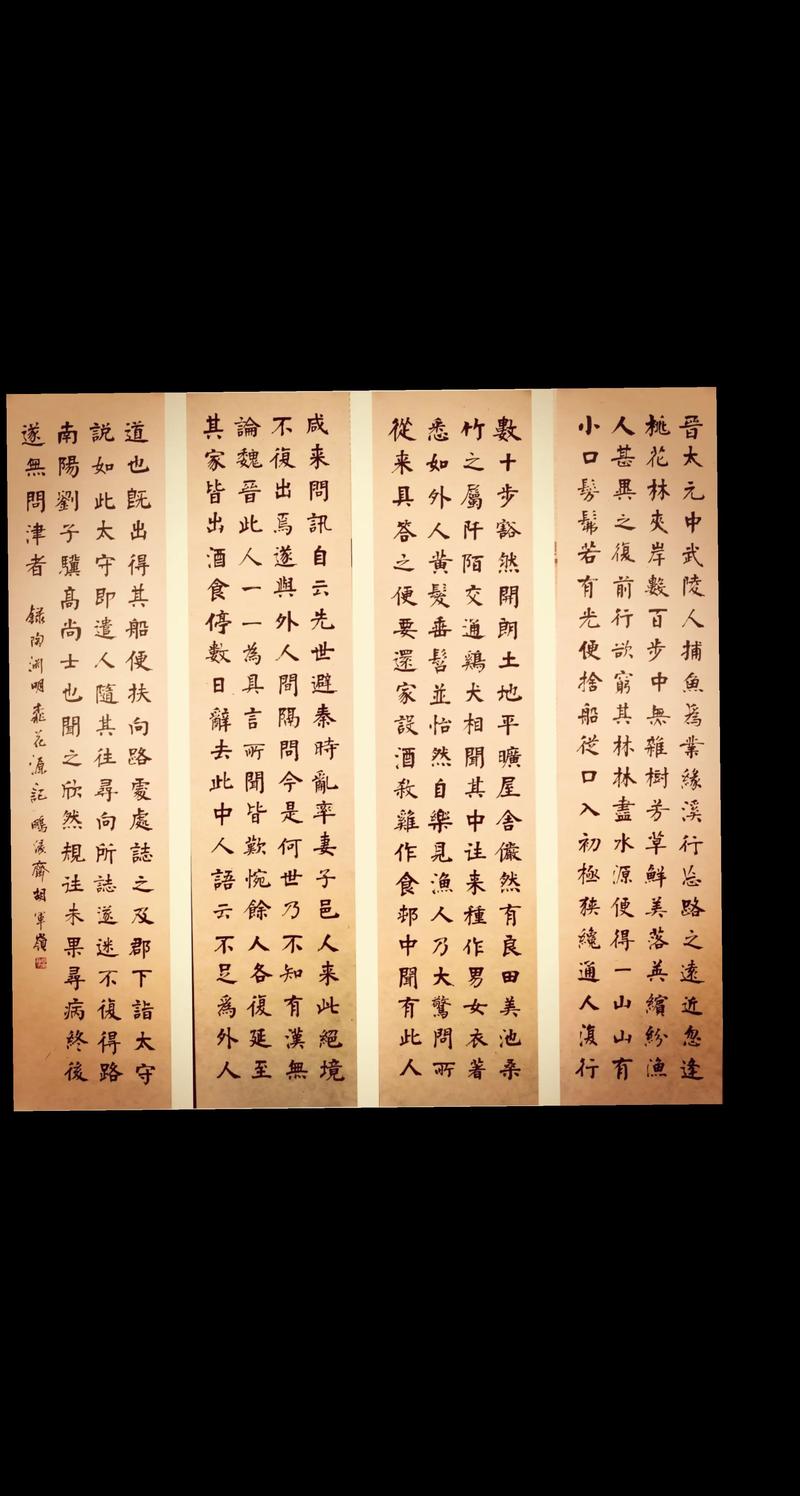 晉太元中武陵人捕魚爲業緣溪行忘路之遠近忽逢
桃花林夾岸數百步中無雜樹芳草鮮美落英繽紛漁
人甚異之復前行欲窮其林林盡水源便得一山山有
小口髣髴若有光便捨船從口入初極狹纔通人復行
數十步豁然開朗土地平曠屋舍儼然有良田美池桑
竹之屬阡陌交通鷄犬相聞其中往来種作男女衣著
悉如外人黃髮垂髫並怡然自樂見漁人乃大驚問所
從来具答之便要還家設酒殺雞作食邨中聞有此人
咸来問訊自云先世避秦時亂率妻子邑人来此絕境
不復出焉遂與外人間隔問今是何世乃不知有漢無
論魏晉此人一一為具言所聞皆歎惋餘人各復延至
其家皆出酒食停數日辭去此中人語云不足為外人
道也既出得其船便扶向路處處誌之及郡下詣太守
説如此太守即遣人隨其往尋向所誌遂迷不復得路
南陽劉子驥高尚士也聞之欣然規往未果尋病終後
遂無問津者
錄陶淵明桃花源記 齋胡軍嶺